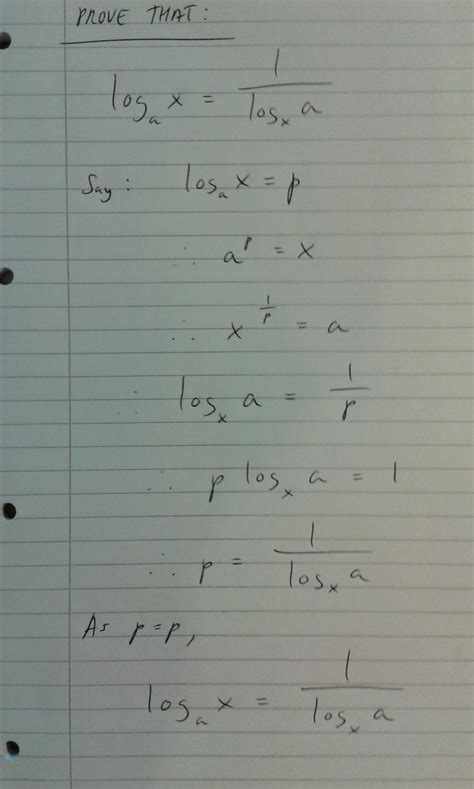 PROVE THAT:
logₐ x = 1/(logₓ a)
Say: logₐ x = p
∴ aᵖ = x
∴ x^(1/p) = a
∴ logₓ a = 1/p
∴ p logₓ a = 1
∴ p = 1/(logₓ a)
As p = p,
logₐ x = 1/(logₓ a)